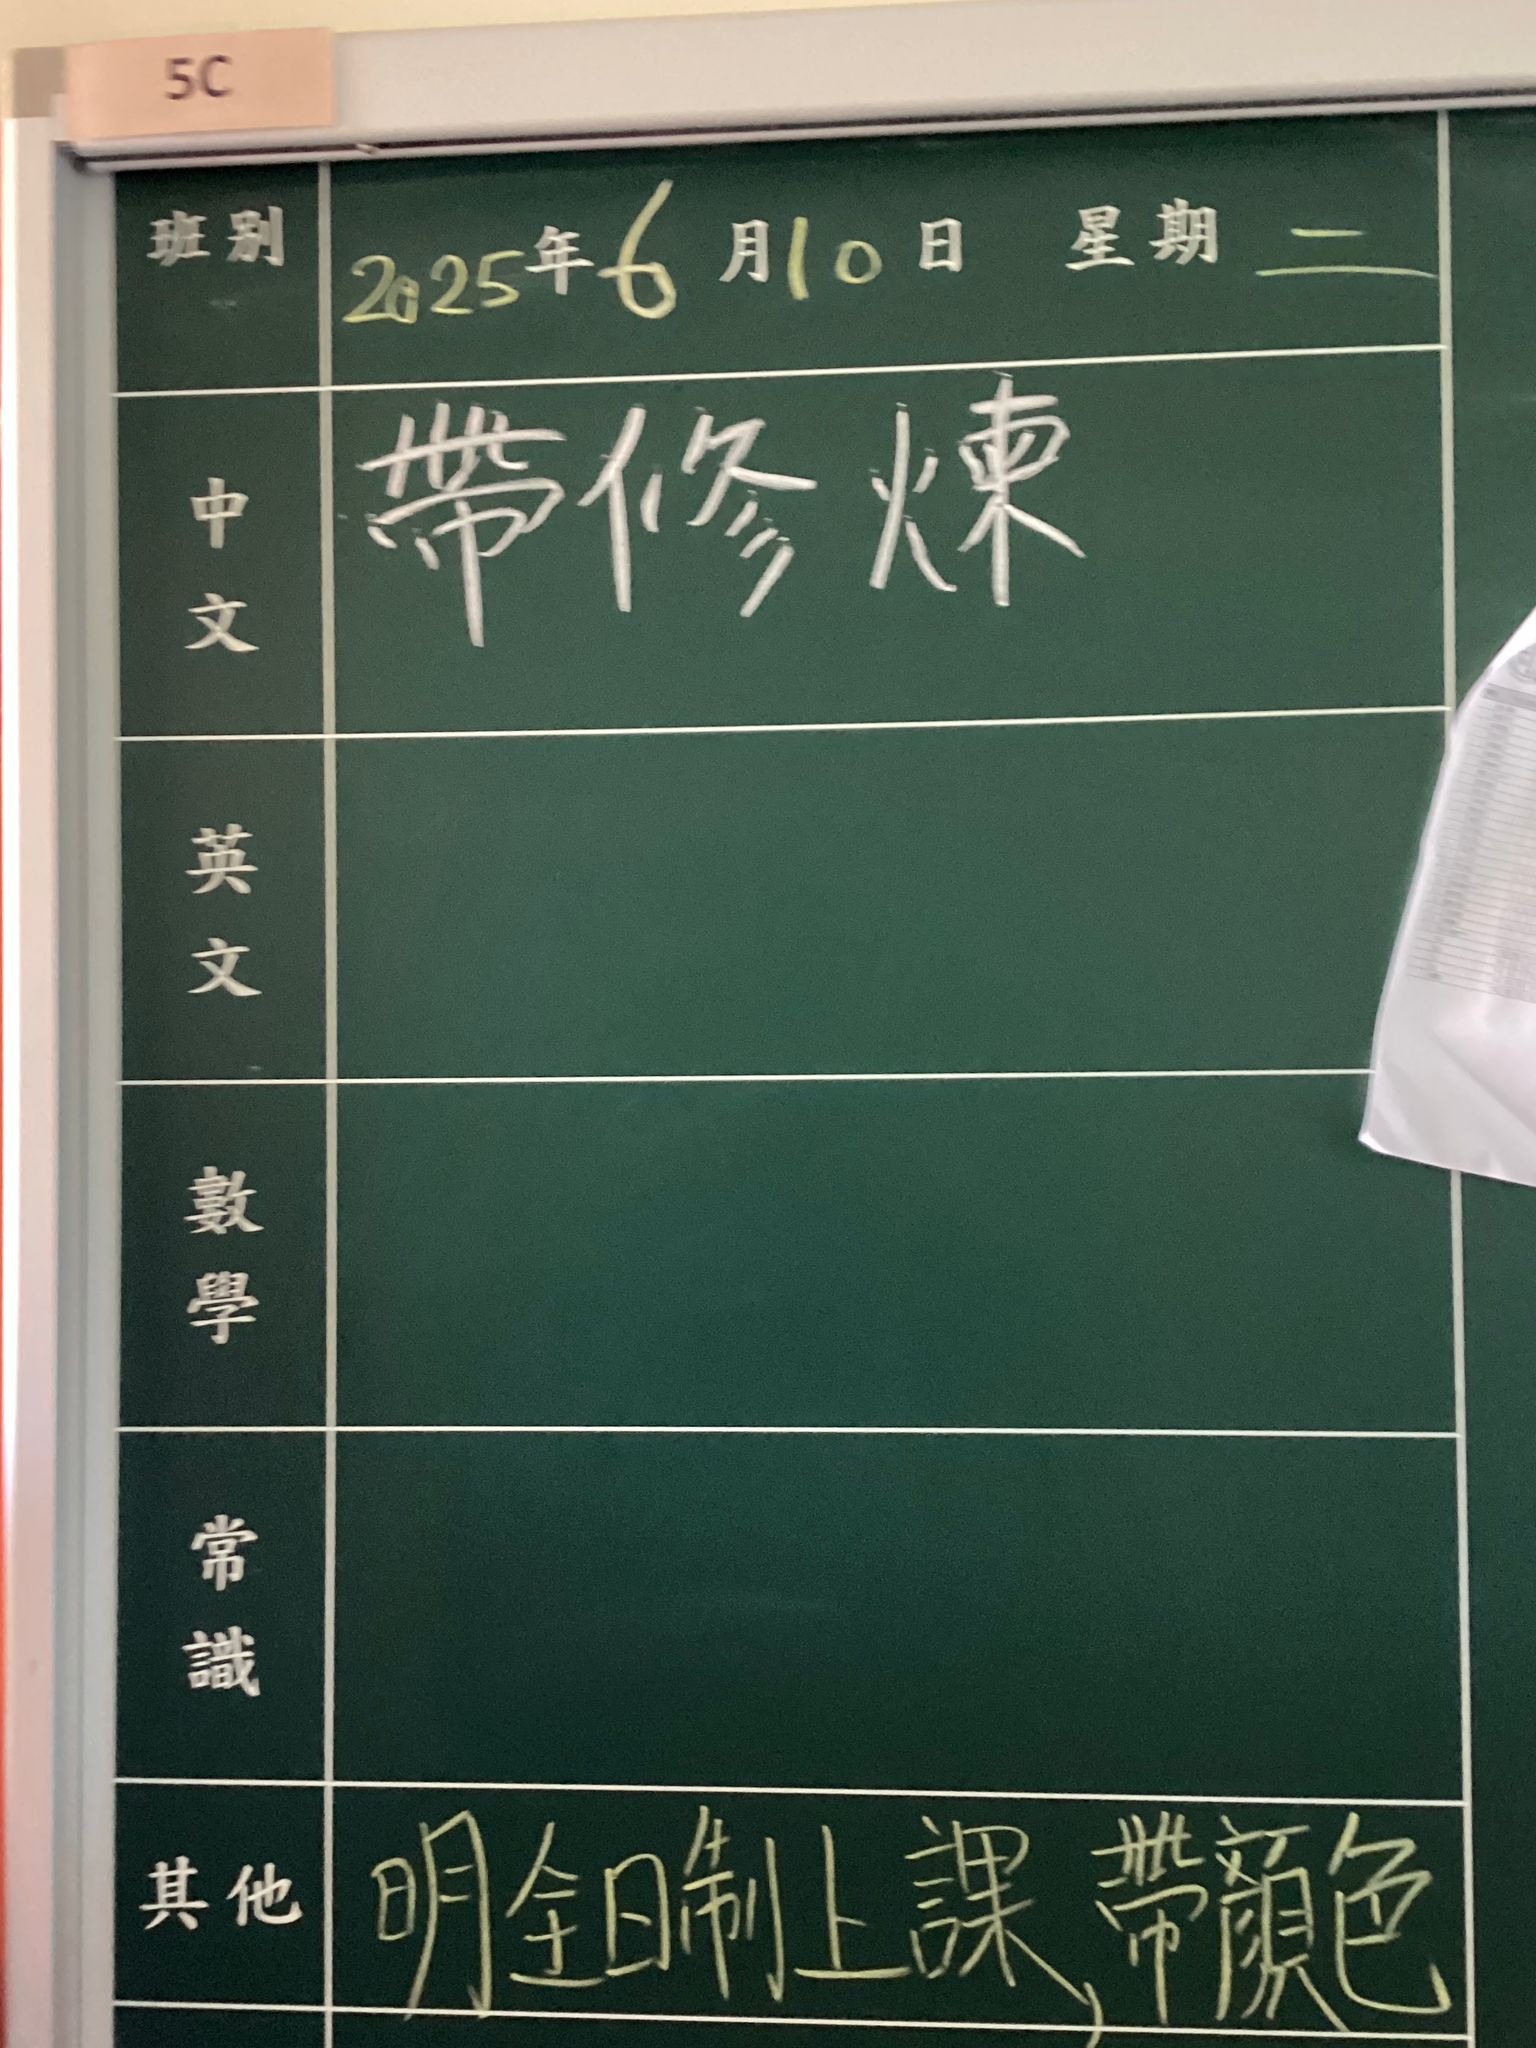 5C
班別 2025年6月10日 星期二
中文 帶修煉
英文
數學
常識
其他 明全日制上課,帶顏色